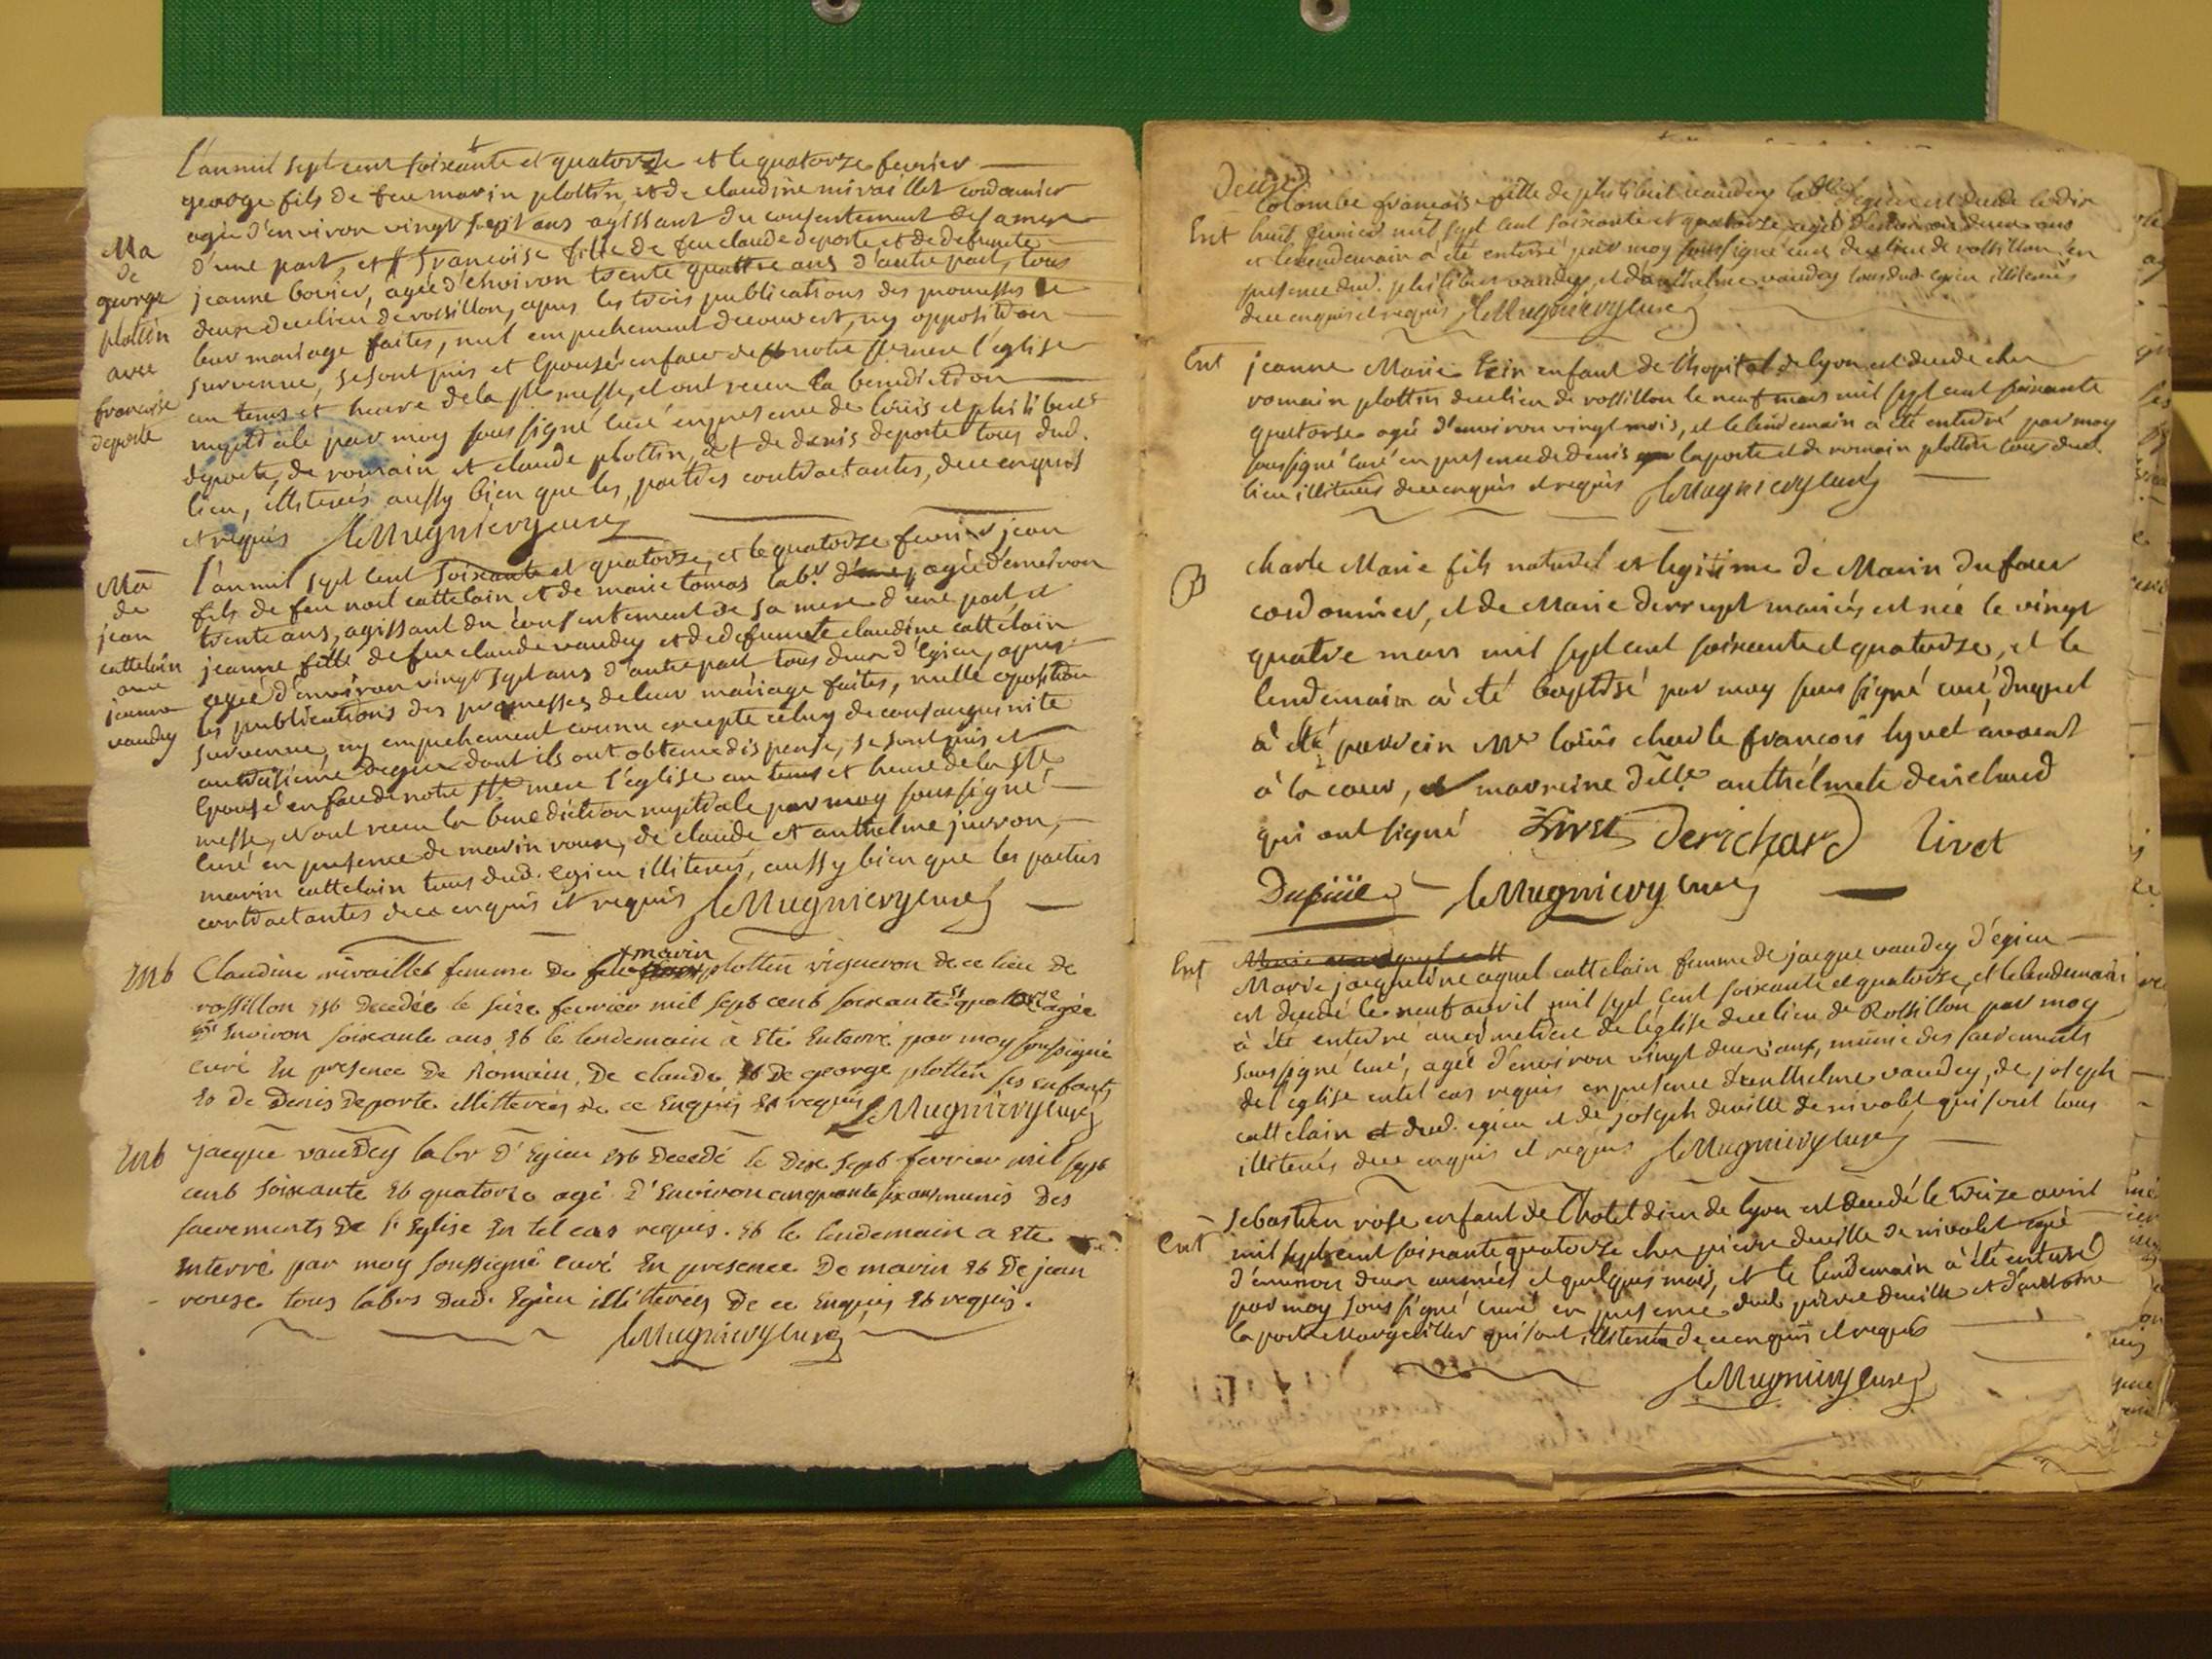 l'an mil sept cent soixante et quatorze et le quatorze fevrier
george fils de feu marin plottin, et de claudine mivaillet cordonnier
agée d'environ vingt sept ans agissant du consentement de sa mere
d'une part, et françoise fille de feu claude deporte et de defuncte
jeanne bovier, agée d'environ trente quattre ans d'autre part, tous
deux de ce lieu de rossillon, apres les trois publications des promesses de
leur mariage faites, nul empechement decouvert, ny opposition
survenue, se sont pris et epousé en face de notre ste mere l'église
au tems et heure de la ste messe, et ont receu la benediction
nuptiale par moy soussigné curé en presence de louis et philibert
deporte, de romain et claude plottin, et de denis deporte tous dud.
lieu, illiterés aussy bien que les parties contractantes, de ce enquis
et requis leMugnieryCuré
Ma
de
george
plottin
avec
françoise
deporte
l'an mil sept cent soixante et quatorze, et le quatorze fevrier jean
fils de feu noel cattelain et de marie tomas labr agé d'environ
trente ans, agissant du consentement de sa mere d'une part et
jeanne fille de feu claude vaudey et de defuncte claudine cattelain
agée d'environ vingt sept ans d'autre part tous deux d'Egieu, apres
les publications des promesses de leur mariage faites, nulle oposition
survenue, ny empechement connu excepte celuy de consanguinite
au troisieme degre dont ils ont obtenu dispense, se sont pris et
Epousé en face de notre ste mere l'église au tems et heure de la ste
messe, et ont receu la benediction nuptiale par moy soussigné
Curé en presence de marin roux, de claude et anthelme juvron,
marin cattelain tous dud. egieu illiterés, aussy bien que les parties
contractantes de ce enquis et requis leMugnieryCuré
Ma
de
jean
cattelain
avec
jeanne
vaudey
Ent Claudine mivaillet femme de feu marin plotten vigneron de ce lieu de
rossillon Est Decedée le seize fevrier mil sept cent soixante et quatorze agée
d'Environ soixante ans Et le lendemain a Eté Enterré par moy soussigné
curé En presence De Romain, De claude Et De george plotten ses Enfants
Et de Denis Deporte illitterés De ce Enquis Et requis leMugnieryCuré
Ent Jacque vaudey labr D'Egieu Est Decedé le Dix sept fevrier mil sept
cent soixante Et quatorze agé D'Environ cinquante six ans munis Des
sacrements De l'Eglise En tel cas requis. Et le lendemain a Ete
Enterré par moy soussigné curé En presence De marin Et De jean
rouse tous labrs Dud. Egieu illitterés De ce Enquis Et requis.
leMugnieryCuré
Colombe françoise fille de philibert vaudey d'Egieu est decedé le dix
Ent huit fevrier mil sept cent soixante et quatorze, agée d'environ deux ans
et le lendemain à été enterré par moy soussigné curé de ce lieu de rossillon en
presence dud. philibert vaudey, et d'anthelme vaudey tous dud. egieu illiterés
de ce enquis et requis leMugnieryCuré
Ent jeanne Marie enfant de l'hopital de lyon est decedé chez
romain plottin de ce lieu de rossillon le neuf mars mil sept cent soixante
quatorse agée d'environ vingt mois, et le lendemain a été enterré par moy
soussigné Curé en presence de denis laporte et de romain plottin tous dud.
lieu illiterés de ce enquis et requis leMugnieryCuré
B charle Marie fils naturel et legitime de Marin Dufour
cordonnier, et de Marie Derrupt mariés est née le vingt
quatre mars mil sept cent soixante et quatorze, et le
lendemain à été baptisé par moy soussigné curé, duquel
à été parrein Mr loüis charle françois lyvet avocat
à la cour, et marreine delle anthelmete derichard
qui ont signé Livet Derichard livet
leMugnieryCuré
Ent Marie jacqueline cattelain femme de jacque vaudey d'égieu
est decedé le neuf avril mil sept cent soixante et quatorze, et le lendemain
à été enterré au cimetiere de l'église de ce lieu de Rossillon par moy
soussigné curé, agée d'environ vingt deux ans, munie des sacrements
de l'église en tel cas requis en presence d'anthelme vaudey, de joseph
cattelain dud. egieu et de joseph deville de nivolet qui sont tous
illiterés de ce enquis et requis leMugnieryCuré
Ent Sebastien rose enfant de l'hotel dieu de lyon est decedé le treize avril
mil sept cent soixante quatorze chez pierre deville de nivolet agé
d'environ deux années et quelques mois, et le lendemain à été enterré
par moy soussigné curé en presence dud. pierre deville et d'antoine
laporte qui sont illiterés de ce enquis et requis
leMugnieryCuré